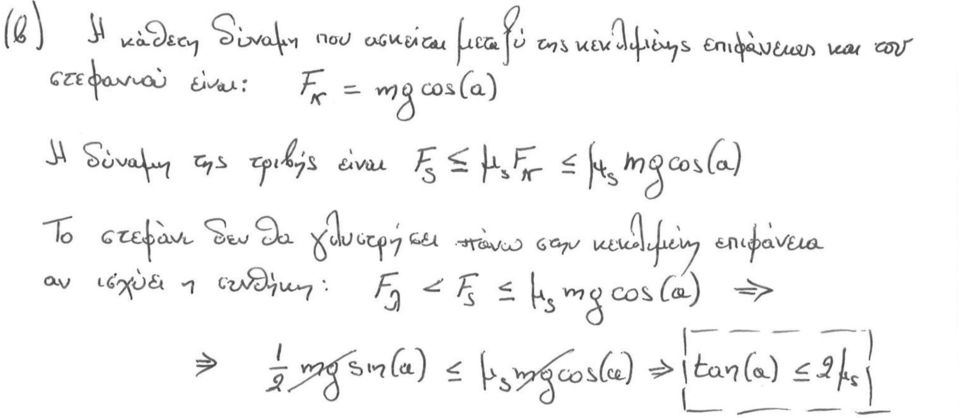 (β) Η κάθετη δύναμη που ασκείται μεταξύ της κεκλιμένης επιφάνειας και του
στεφανιού είναι: Fκ = mg cos(α)
Η δύναμη της τριβής είναι Fs ≤ μs Fκ ≤ μs mg cos(α)
Το στεφάνι δεν θα γλυστρήσει πάνω στην κεκλιμένη επιφάνεια
αν ισχύει η συνθήκη: F < Fs ≤ μs mg cos(α) ⇒
⇒ 1/2 mg sin(α) ≤ μs mg cos(α) ⇒ tan(α) ≤ 2μs